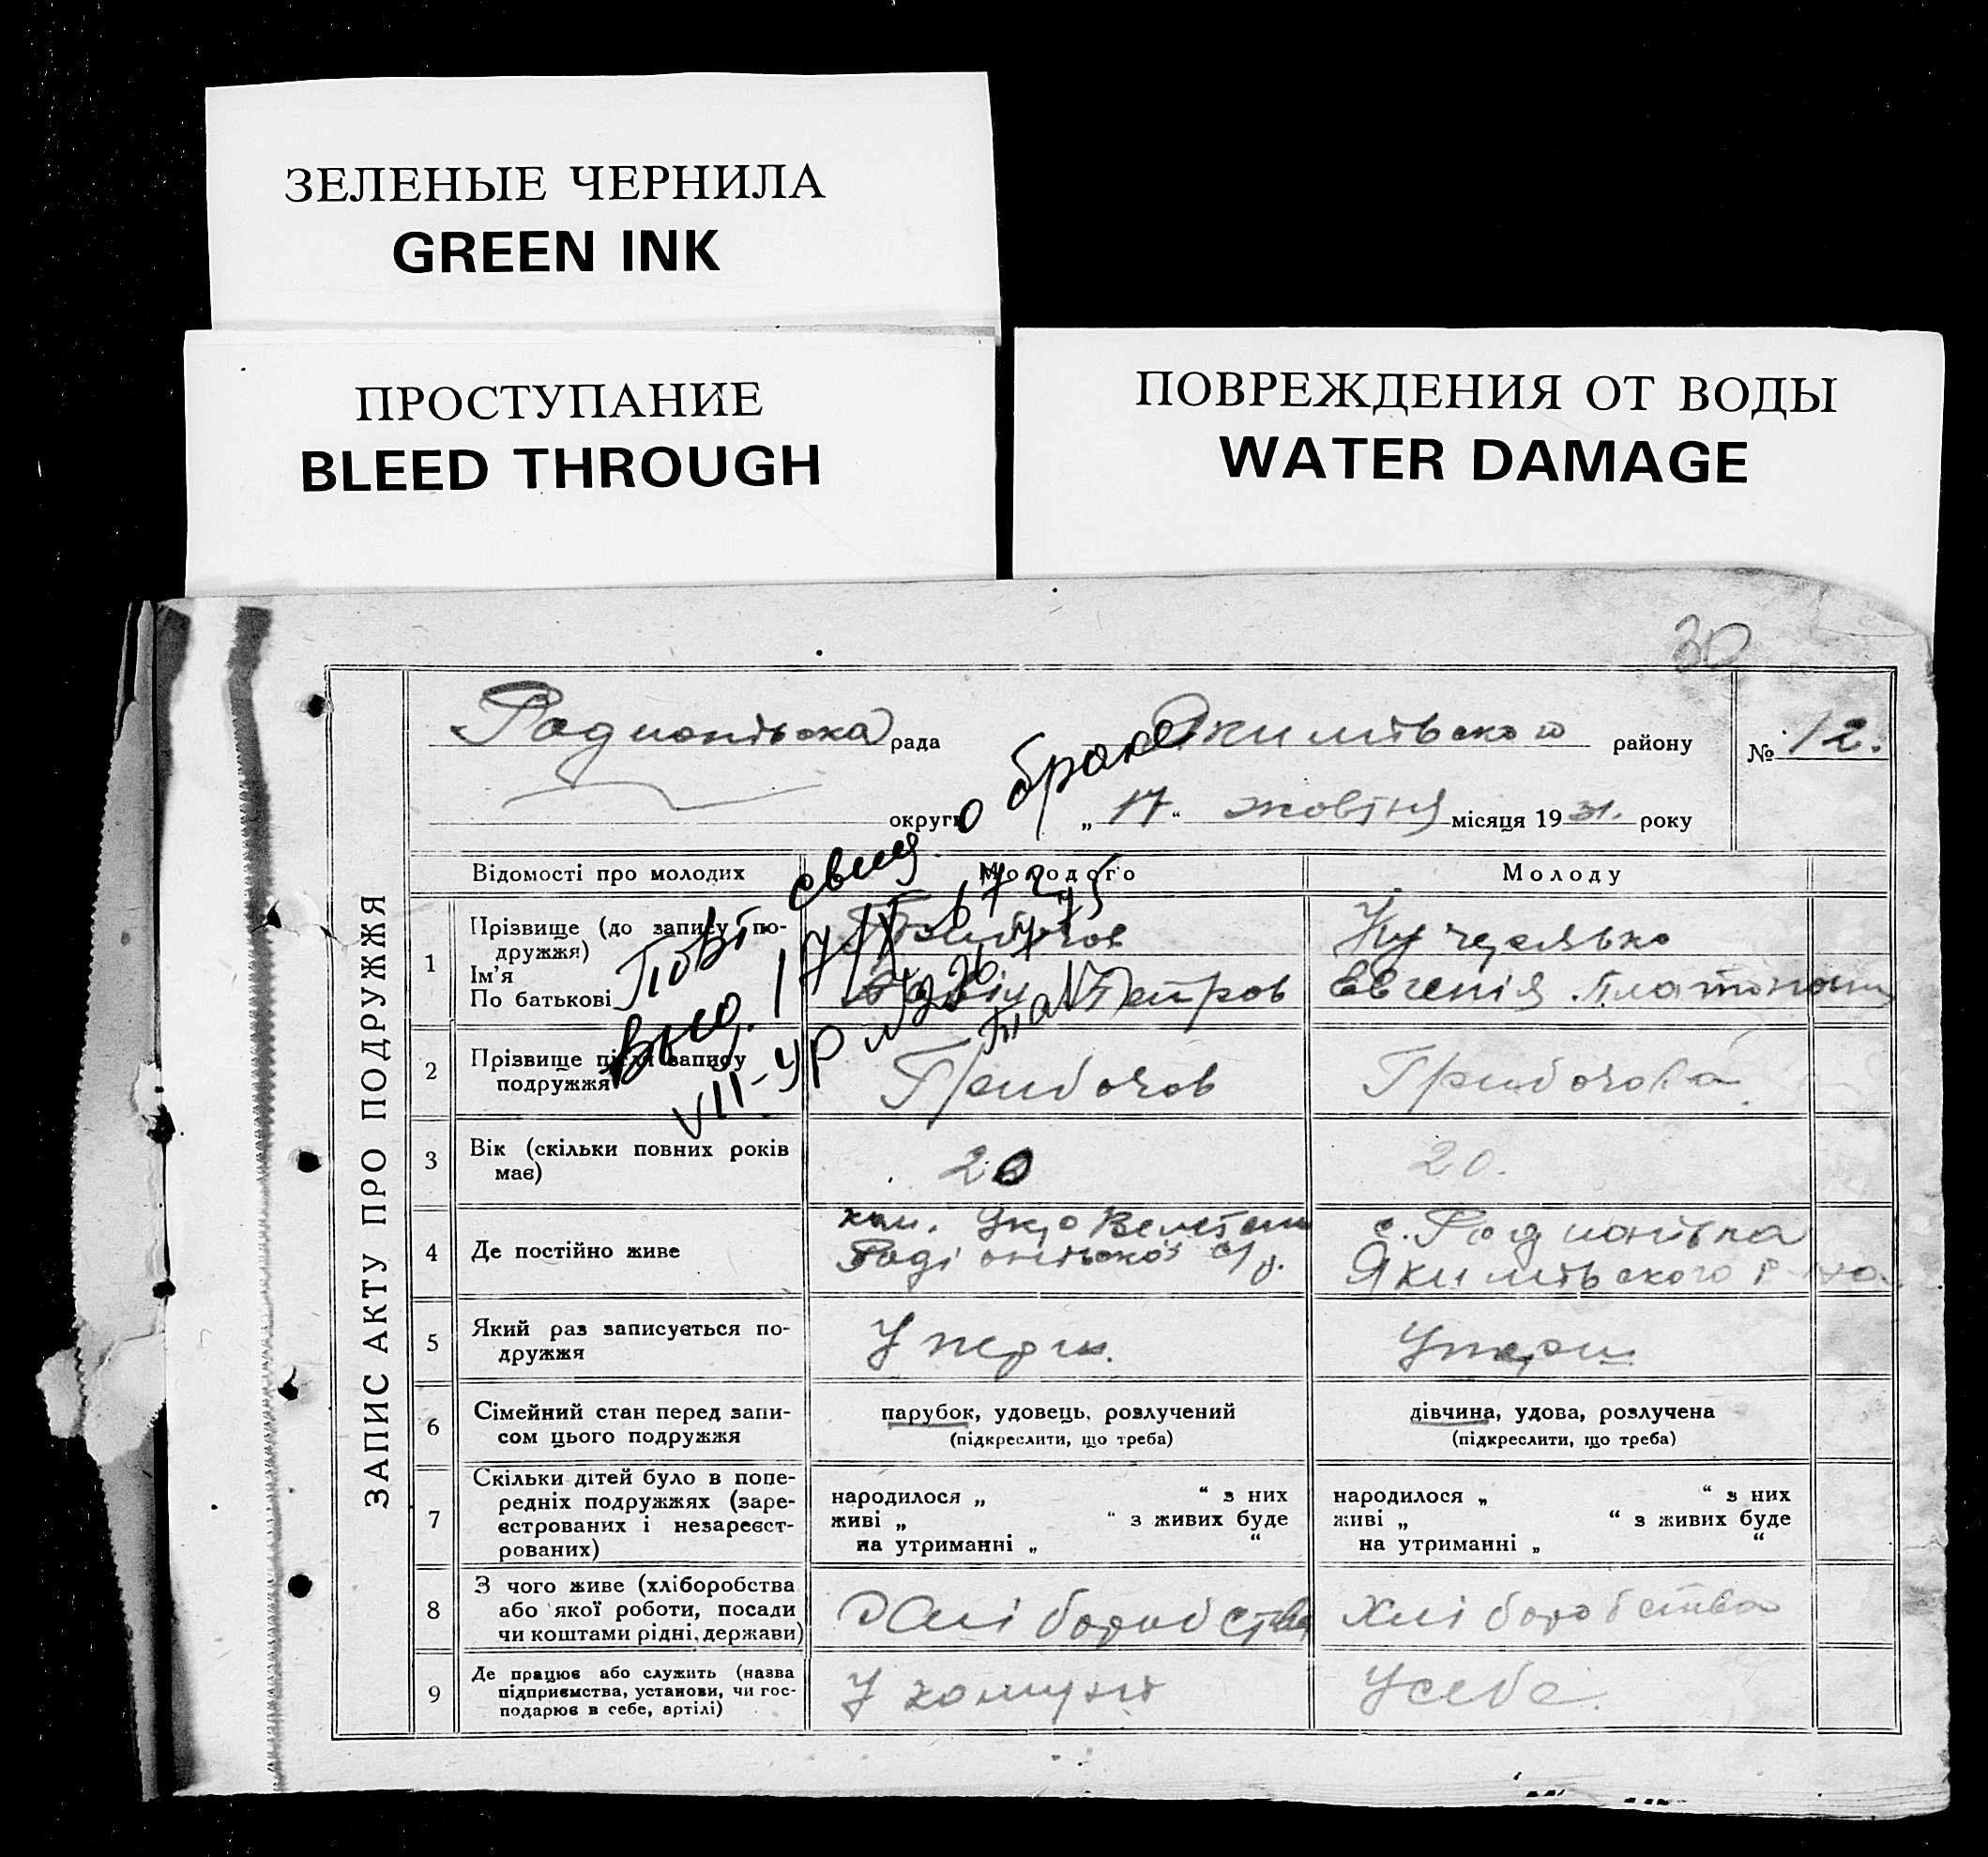 ЗЕЛЕНЫЕ ЧЕРНИЛА
GREEN INK
ПРОСТУПАНИЕ
BLEED THROUGH
ПОВРЕЖДЕНИЯ ОТ ВОДЫ
WATER DAMAGE
30
ЗАПИС АКТУ ПРО ПОДРУЖЖЯ
Родионівська рада Якимівського району № 12.
округи „ 17 “ жовтня місяця 19 31. року
Повт. свид. о браке
выд. 17/X
VII-УР №
Відомості про молодих Молодого Молоду
1 Прізвище (до запису подружжя)
Ім’я
По батькові
Грибочов
Петров
Кучеренко
Євгенія Платонони
2 Прізвище після запису
подружжя
Грибочов Грибочова
3 Вік (скільки повних років
має)
20 20.
4 Де постійно живе
ком.
Родіонівської с/р.
с. Родионівка
Якимівського р-на
5 Який раз записується по-
дружжя
У перш. У перш
6 Сімейний стан перед запи-
сом цього подружжя
парубок, удовець, розлучений
(підкреслити, що треба)
дівчина, удова, розлучена
(підкреслити, що треба)
7 Скільки дітей було в попе-
редніх подружжях (заре-
єстрованих і незареєст-
рованих)
народилося „ “ з них
живі „ “ з живих буде
на утриманні „ “
народилося „ “ з них
живі „ “ з живих буде
на утриманні „ “
8 З чого живе (хліборобства
або якої роботи, посади
чи коштами рідні, держави)
Хліборобства Хліборобства
9 Де працює або служить (назва
підприємства, установи, чи гос-
подарює в себе, артілі)
У комуні У себе.